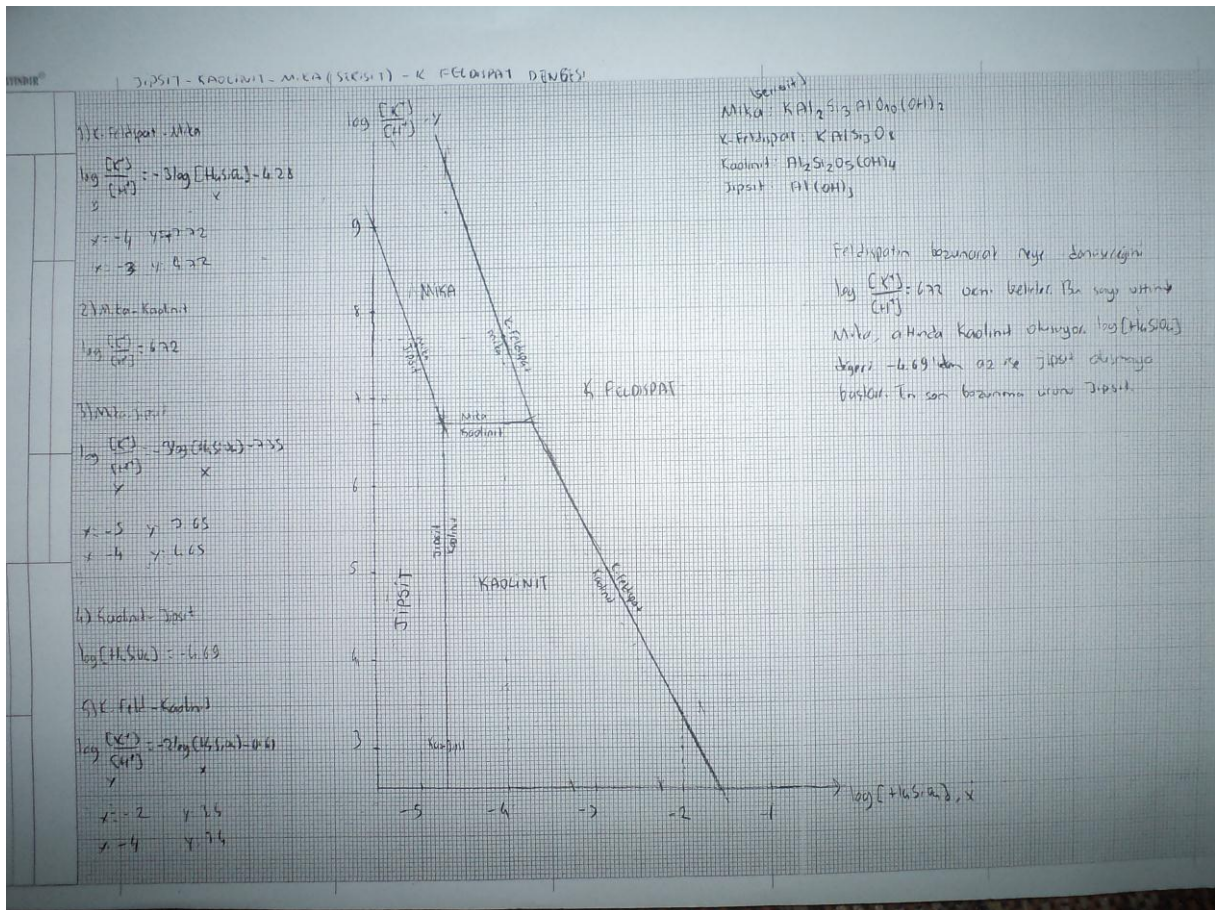 JİPSİT - KAOLİNİT - MİKA (SERİSİT) - K FELDİSPAT DENGESİ
1) K-Feldispat - Mika
log [K+]/[H+] = -3log [H4SiO4] - 4.28
y
x
x = -4 y = 7.72
x = -3 y: 4.72
2) Mika - Kaolinit
log [K+]/[H+] = 6.72
3) Mika - Jipsit
log [K+]/[H+] = -3log [H4SiO4] - 7.35
y
x
x = -5 y 7.65
x -4 y 4.65
4) Kaolinit - Jipsit
log [H4SiO4] = -4.69
5) K Feld - Kaolinit
log [K+]/[H+] = -2log [H4SiO4]
y
x
x = -2
x -4
log [K+]/[H+], y
9
8
6
5
4
3
-5
-4
-3
-2
-1
log [H4SiO4], x
MİKA
Mika
Jipsit
K-Feldispat
Mika
K FELDİSPAT
Mika
Kaolinit
Jipsit
Kaolinit
JİPSİT
KAOLİNİT
K-Feldispat
Kaolinit
(serisit)
Mika: KAl2Si3AlO10(OH)2
K-Feldispat: KAlSi3O8
Kaolinit: Al2Si2O5(OH)4
Jipsit: Al(OH)3
Feldispatın bozunarak neye dönüşeceğini
log [K+]/[H+] = 6.72 belirler. Bu sayı üstünde
Mika, altında Kaolinit oluşuyor. log [H4SiO4]
değeri -4.69'dan az ise jipsit oluşmaya
başlar. En son bozunma ürünü Jipsit.